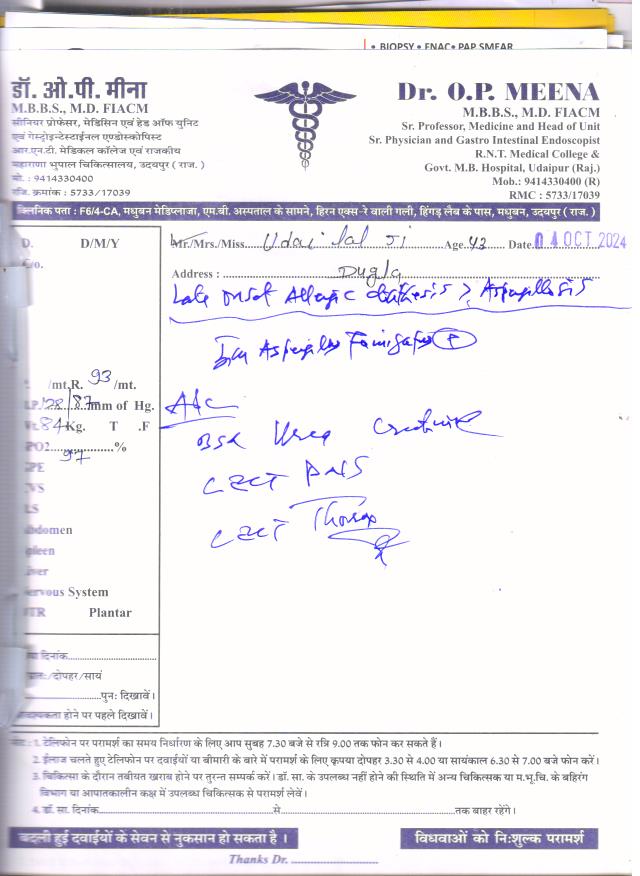 • BIOPSY • FNAC• PAP SMEAR
डॉ. ओ.पी. मीना
M.B.B.S., M.D. FIACM
सीनियर प्रोफेसर, मेडिसिन एवं हेड ऑफ युनिट
एवं गेस्ट्रोइन्टेस्टाईनल एण्डोस्कोपिस्ट
आर.एन.टी. मेडिकल कॉलेज एवं राजकीय
महाराणा भुपाल चिकित्सालय, उदयपुर ( राज. )
मो. : 9414330400
रजि. क्रमांक : 5733/17039
Dr. O.P. MEENA
M.B.B.S., M.D. FIACM
Sr. Professor, Medicine and Head of Unit
Sr. Physician and Gastro Intestinal Endoscopist
R.N.T. Medical College &
Govt. M.B. Hospital, Udaipur (Raj.)
Mob.: 9414330400 (R)
RMC : 5733/17039
क्लिनिक पता : F6/4-CA, मधुबन मेडिप्लाजा, एम.बी. अस्पताल के सामने, हिरन एक्स-रे वाली गली, हिंगड़ लैब के पास, मधुबन, उदयपुर ( राज. )
D. D/M/Y
C/o.
Mr./Mrs./Miss. Udai lal Ji Age 43 Date. 04 OCT 2024
Address :
Late onset Allergic diathesis > Aspergillosis
Aspergillus Fumigatus +
/mt. R. 93 /mt.
128/87 mm of Hg.
Wt. 84 Kg. T .F
SPO2 97 %
GPE
CVS
LS
Abdomen
Spleen
Liver
Nervous System
DTR Plantar
Adv
BSR Urea Creatinine
CECT PNS
CECT Thorax
दिनांक
प्रातः/दोपहर/सायं
पुनः दिखावें।
आवश्यकता होने पर पहले दिखावें।
नोट : 1. टेलिफोन पर परामर्श का समय निर्धारण के लिए आप सुबह 7.30 बजे से रात्रि 9.00 तक फोन कर सकते हैं।
2. ईलाज चलते हुए टेलिफोन पर दवाईयों या बीमारी के बारे में परामर्श के लिए कृपया दोपहर 3.30 से 4.00 या सायंकाल 6.30 से 7.00 बजे फोन करें।
3. चिकित्सा के दौरान तबीयत खराब होने पर तुरन्त सम्पर्क करें। डॉ. सा. के उपलब्ध नहीं होने की स्थिति में अन्य चिकित्सक या म.भू.चि. के बहिरंग
विभाग या आपातकालीन कक्ष में उपलब्ध चिकित्सक से परामर्श लेवें।
4. डॉ. सा. दिनांक से तक बाहर रहेंगे।
बदली हुई दवाईयों के सेवन से नुकसान हो सकता है।
विधवाओं को निःशुल्क परामर्श
Thanks Dr.